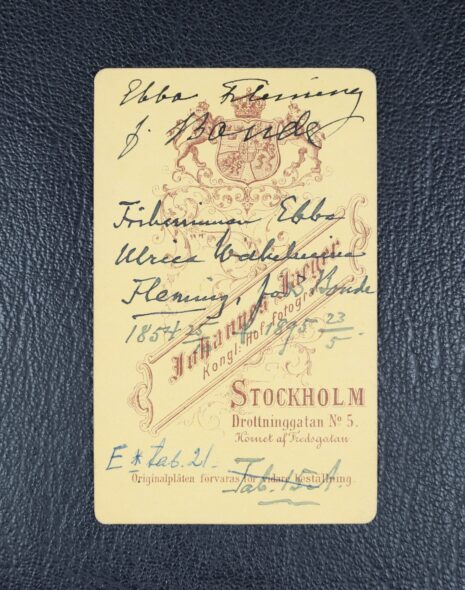 Ebba Fleming
f. Bonde
Friherrinnan Ebba
Ulrica Wilhelmina
Fleming, född Bonde
1854 25 1895 23/5
Johannes Jaeger
Kongl. Hof-fotograf
STOCKHOLM
Drottninggatan Nº 5.
Hörnet af Fredsgatan.
E * tab. 21.
Originalplåten förvaras för vidare beställning.
Tab.